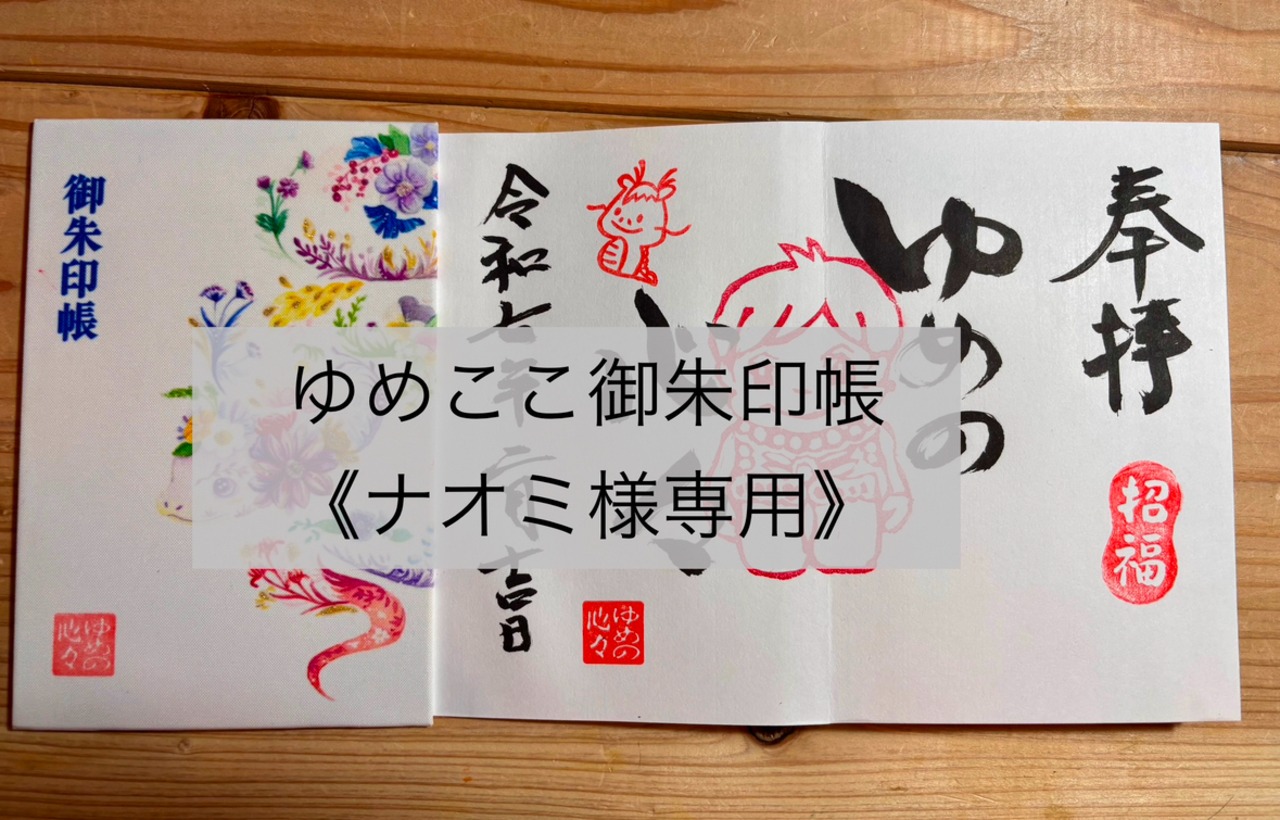 御朱印帳
ゆめの
心々
ゆめここ御朱印帳
《ナオミ様専用》
奉拝
招福
ゆめの
心々
令和七年一月吉日
ゆめの
心々